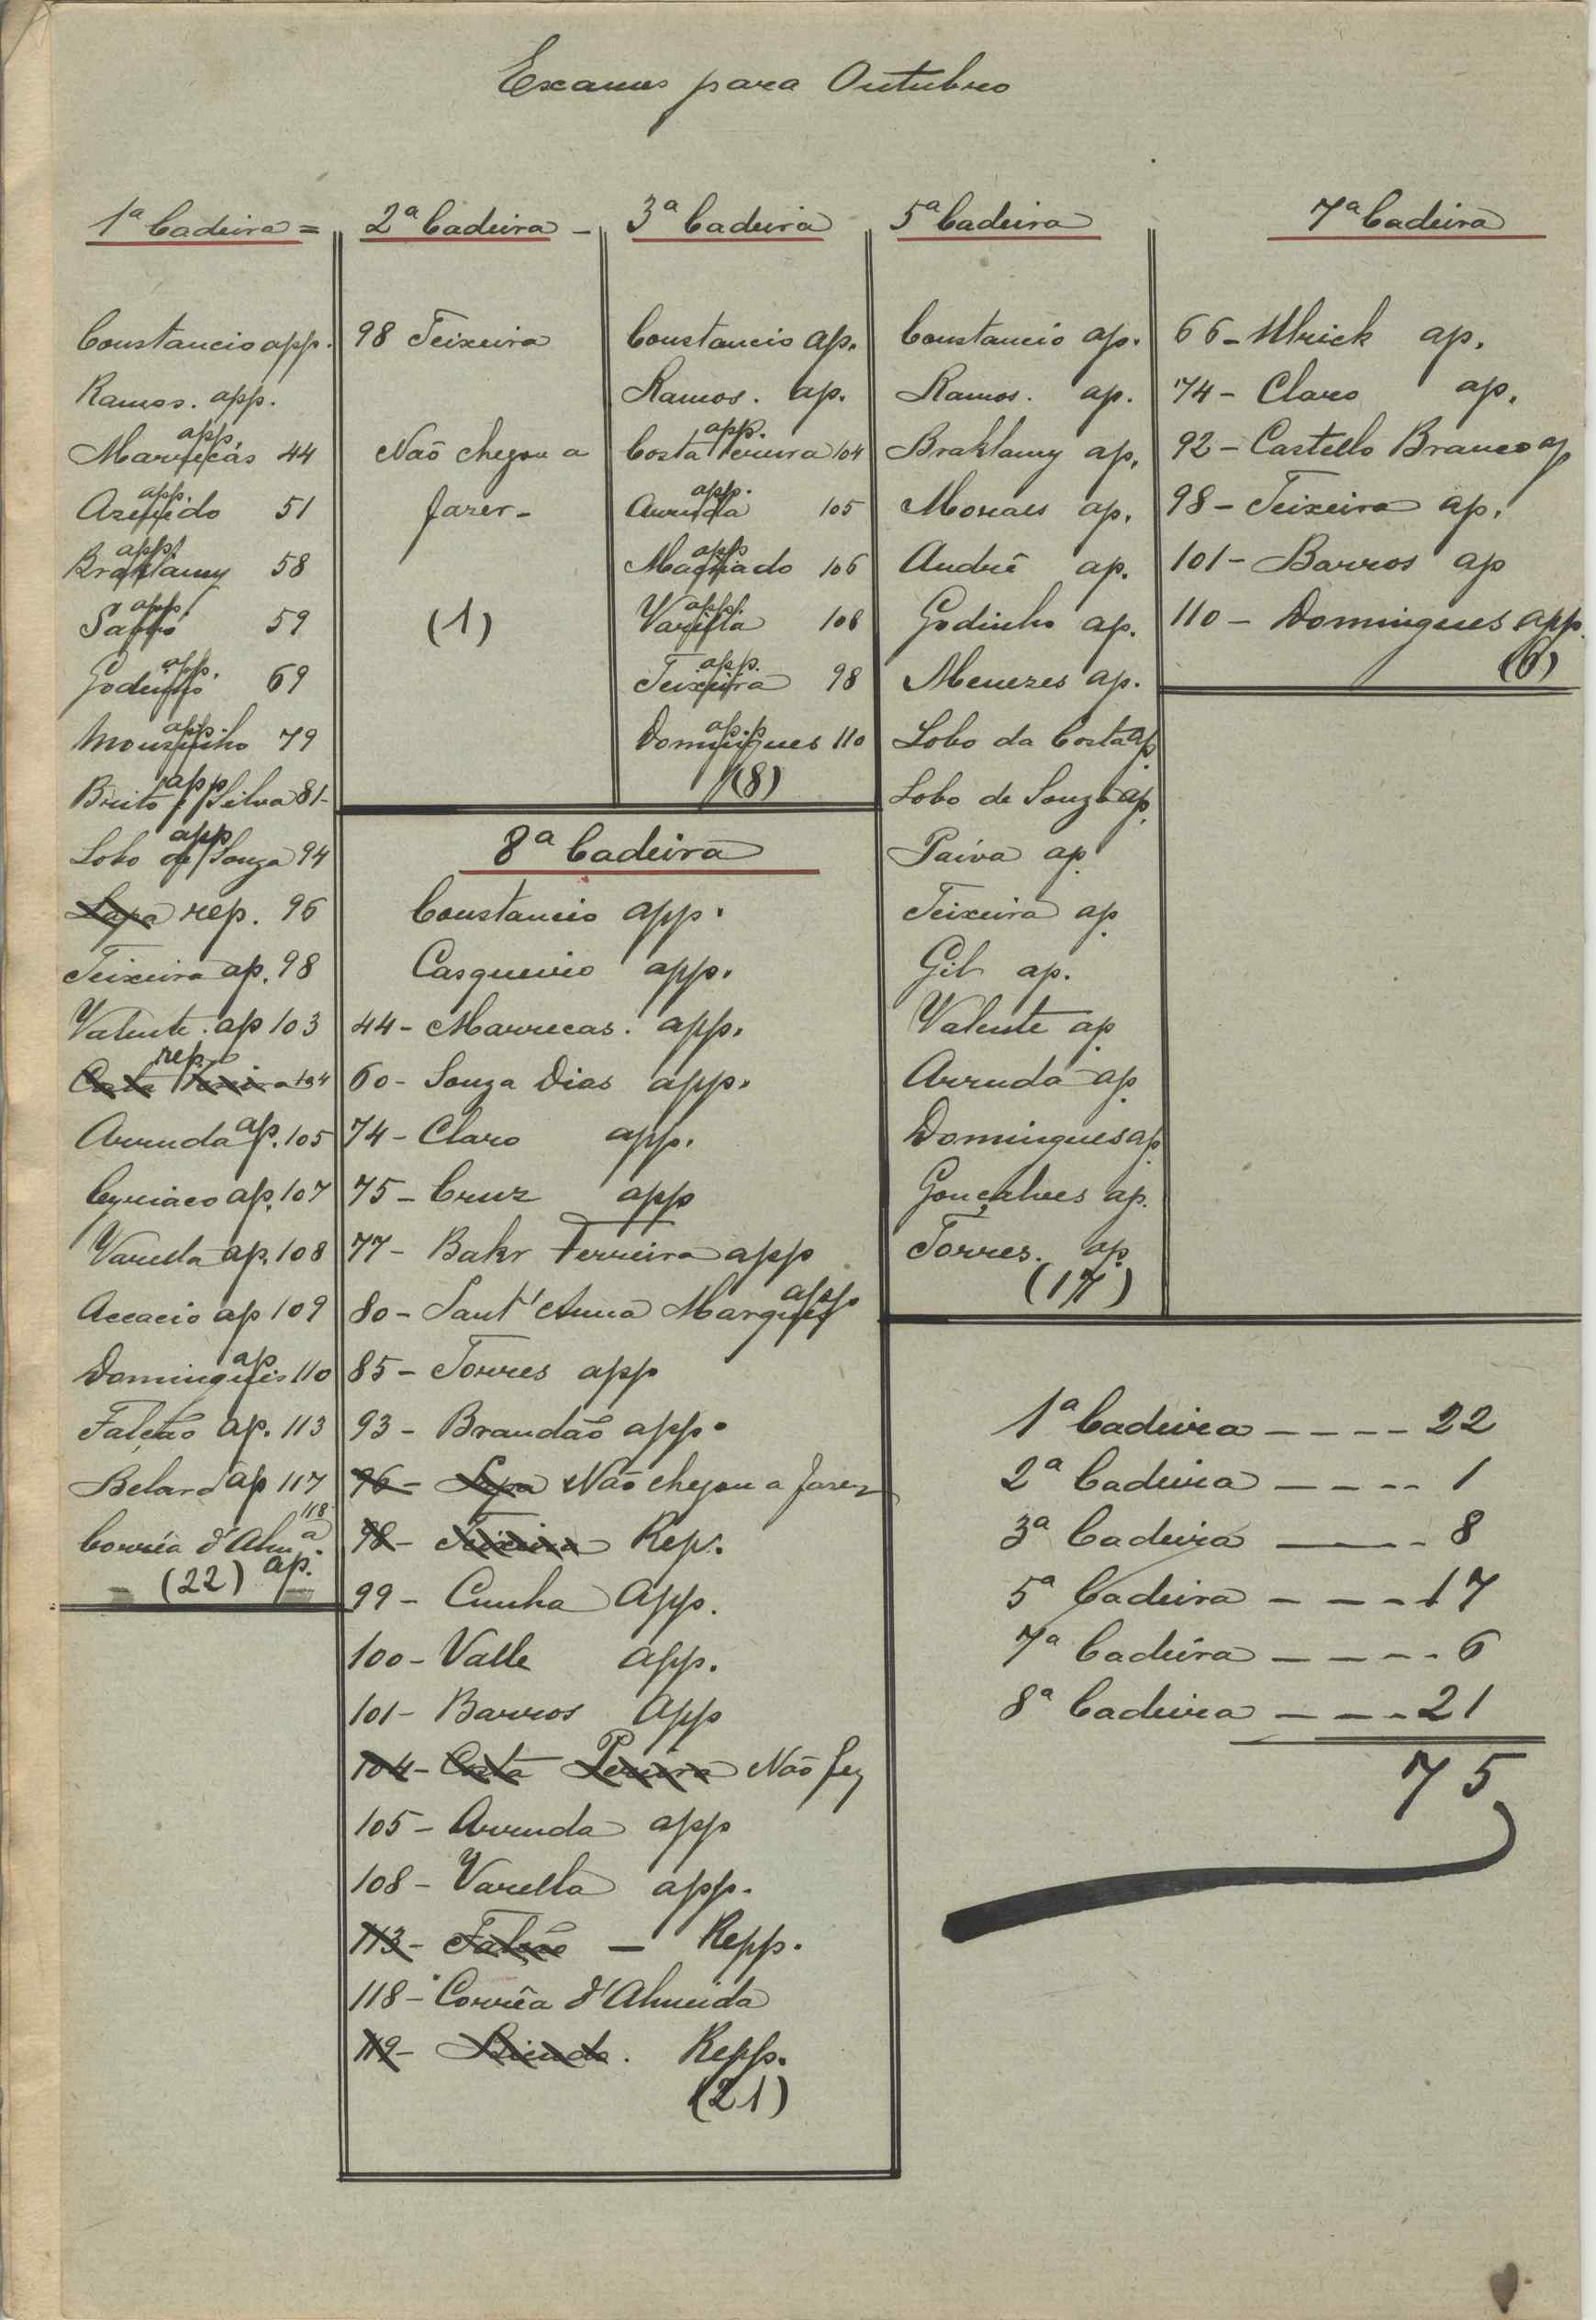 Exames para Outubro
1ª Cadeira =
Constancio app.
Ramos. app.
app.
Marrecas 44
app.
Azevedo 51
app.
Braklamy 58
app.
59
app.
Godinho 69
app.
Mousinho 79
app
Brito e Silva 81-
app
Lobo de Souza 94
Lapa rep. 96
Teixeira ap. 98
Valente. ap 103
rep.
Costa Pereira 104
Arruda ap. 105
Cyriaco ap. 107
Varella ap. 108
Accacio ap 109
ap
Domingues 110
Falcão ap. 113
Belard ap 117
118
Corrêa d'Almª.
(22) ap.
2ª Cadeira -
98 Teixeira
Não chegou a
fazer-
(1)
3ª Cadeira
Constancio ap.
Ramos. ap.
app.
Costa Pereira 104
app.
Arruda 105
app
Machado 106
app.
Varella 108
app.
Teixeira 98
app
Domingues 110
(8)
5ª Cadeira
Constancio ap.
Ramos. ap.
Braklamy ap.
Moraes ap.
André ap.
Godinho ap.
Menezes ap.
Lobo da Costa ap.
Lobo de Souza ap.
Paiva ap.
Teixeira ap.
Gil ap.
Valente ap.
Arruda ap.
Domingues ap.
Gonçalves ap.
Torres. ap.
(17)
7ª Cadeira
66- Ulrick ap.
74- Claro ap.
92- Castello Branco ap
98- Teixeira ap.
101- Barros ap
110- Domingues app.
(6)
8ª Cadeira
Constancio app.
Casqueiro app.
44- Marrecas. app.
60- Souza Dias app.
74- Claro app.
75- Cruz app
77- Bakr Ferreira app
app
80- Sant'Anna Marques
85- Torres app
93- Brandão app.
96- Lapa Não chegou a fazer
98- Teixeira Rep.
99- Cunha App.
100- Valle App.
101- Barros App
104- Costa Pereira Não fez
105- Arruda app
108- Varella app.
113- Falcão - Repp.
118- Corrêa d'Almeida
119- Repp.
(21)
1ª Cadeira ---- 22
2ª Cadeira ---- 1
3ª Cadeira ---- 8
5ª Cadeira --- 17
7ª Cadeira ---- 6
8ª Cadeira --- 21
75